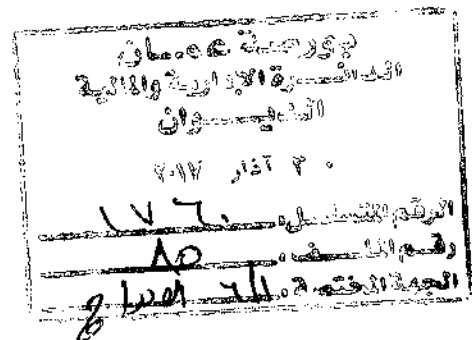 بورصة عمان
الدائرة الإدارية والمالية
الديوان
٣٠ آذار ٢٠١٧
الرقم المتسلسل: ١٧٦٠
رقم الملف: ٨٥
الجهة المختصة: